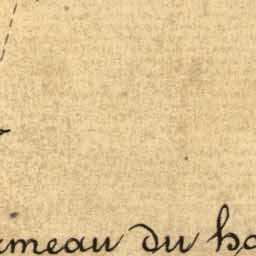 ameau du ha